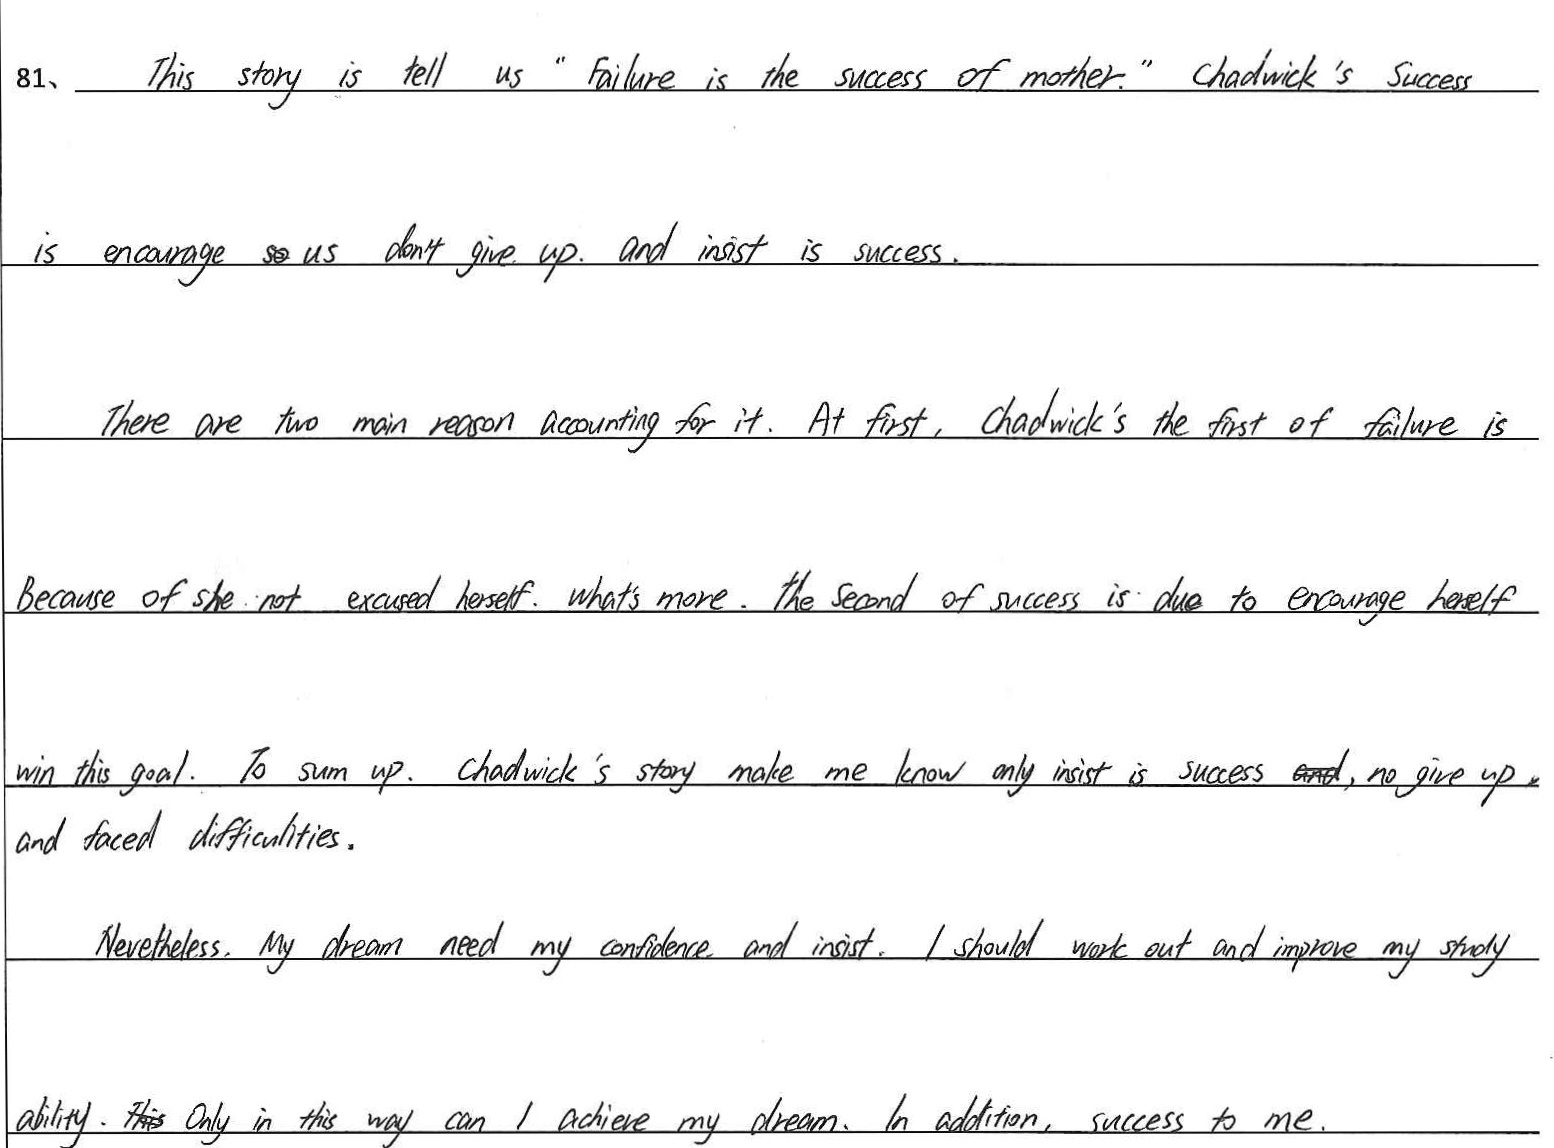 81、 This story is tell us " Failure is the success of mother." Chadwick's Success
is encourage us don't give up. and insist is success.
There are two main reason accounting for it. At first, Chadwick's the first of failure is
Because of she not excused herself. what's more. the Second of success is due to encourage herself
win this goal. To sum up. Chadwick's story make me know only insist is success and, no give up.
and faced difficulities.
Nevetheless. My dream need my confidence and insist. I should work out and improve my study
ability. This Only in this way can I achieve my dream. In addition, success to me.